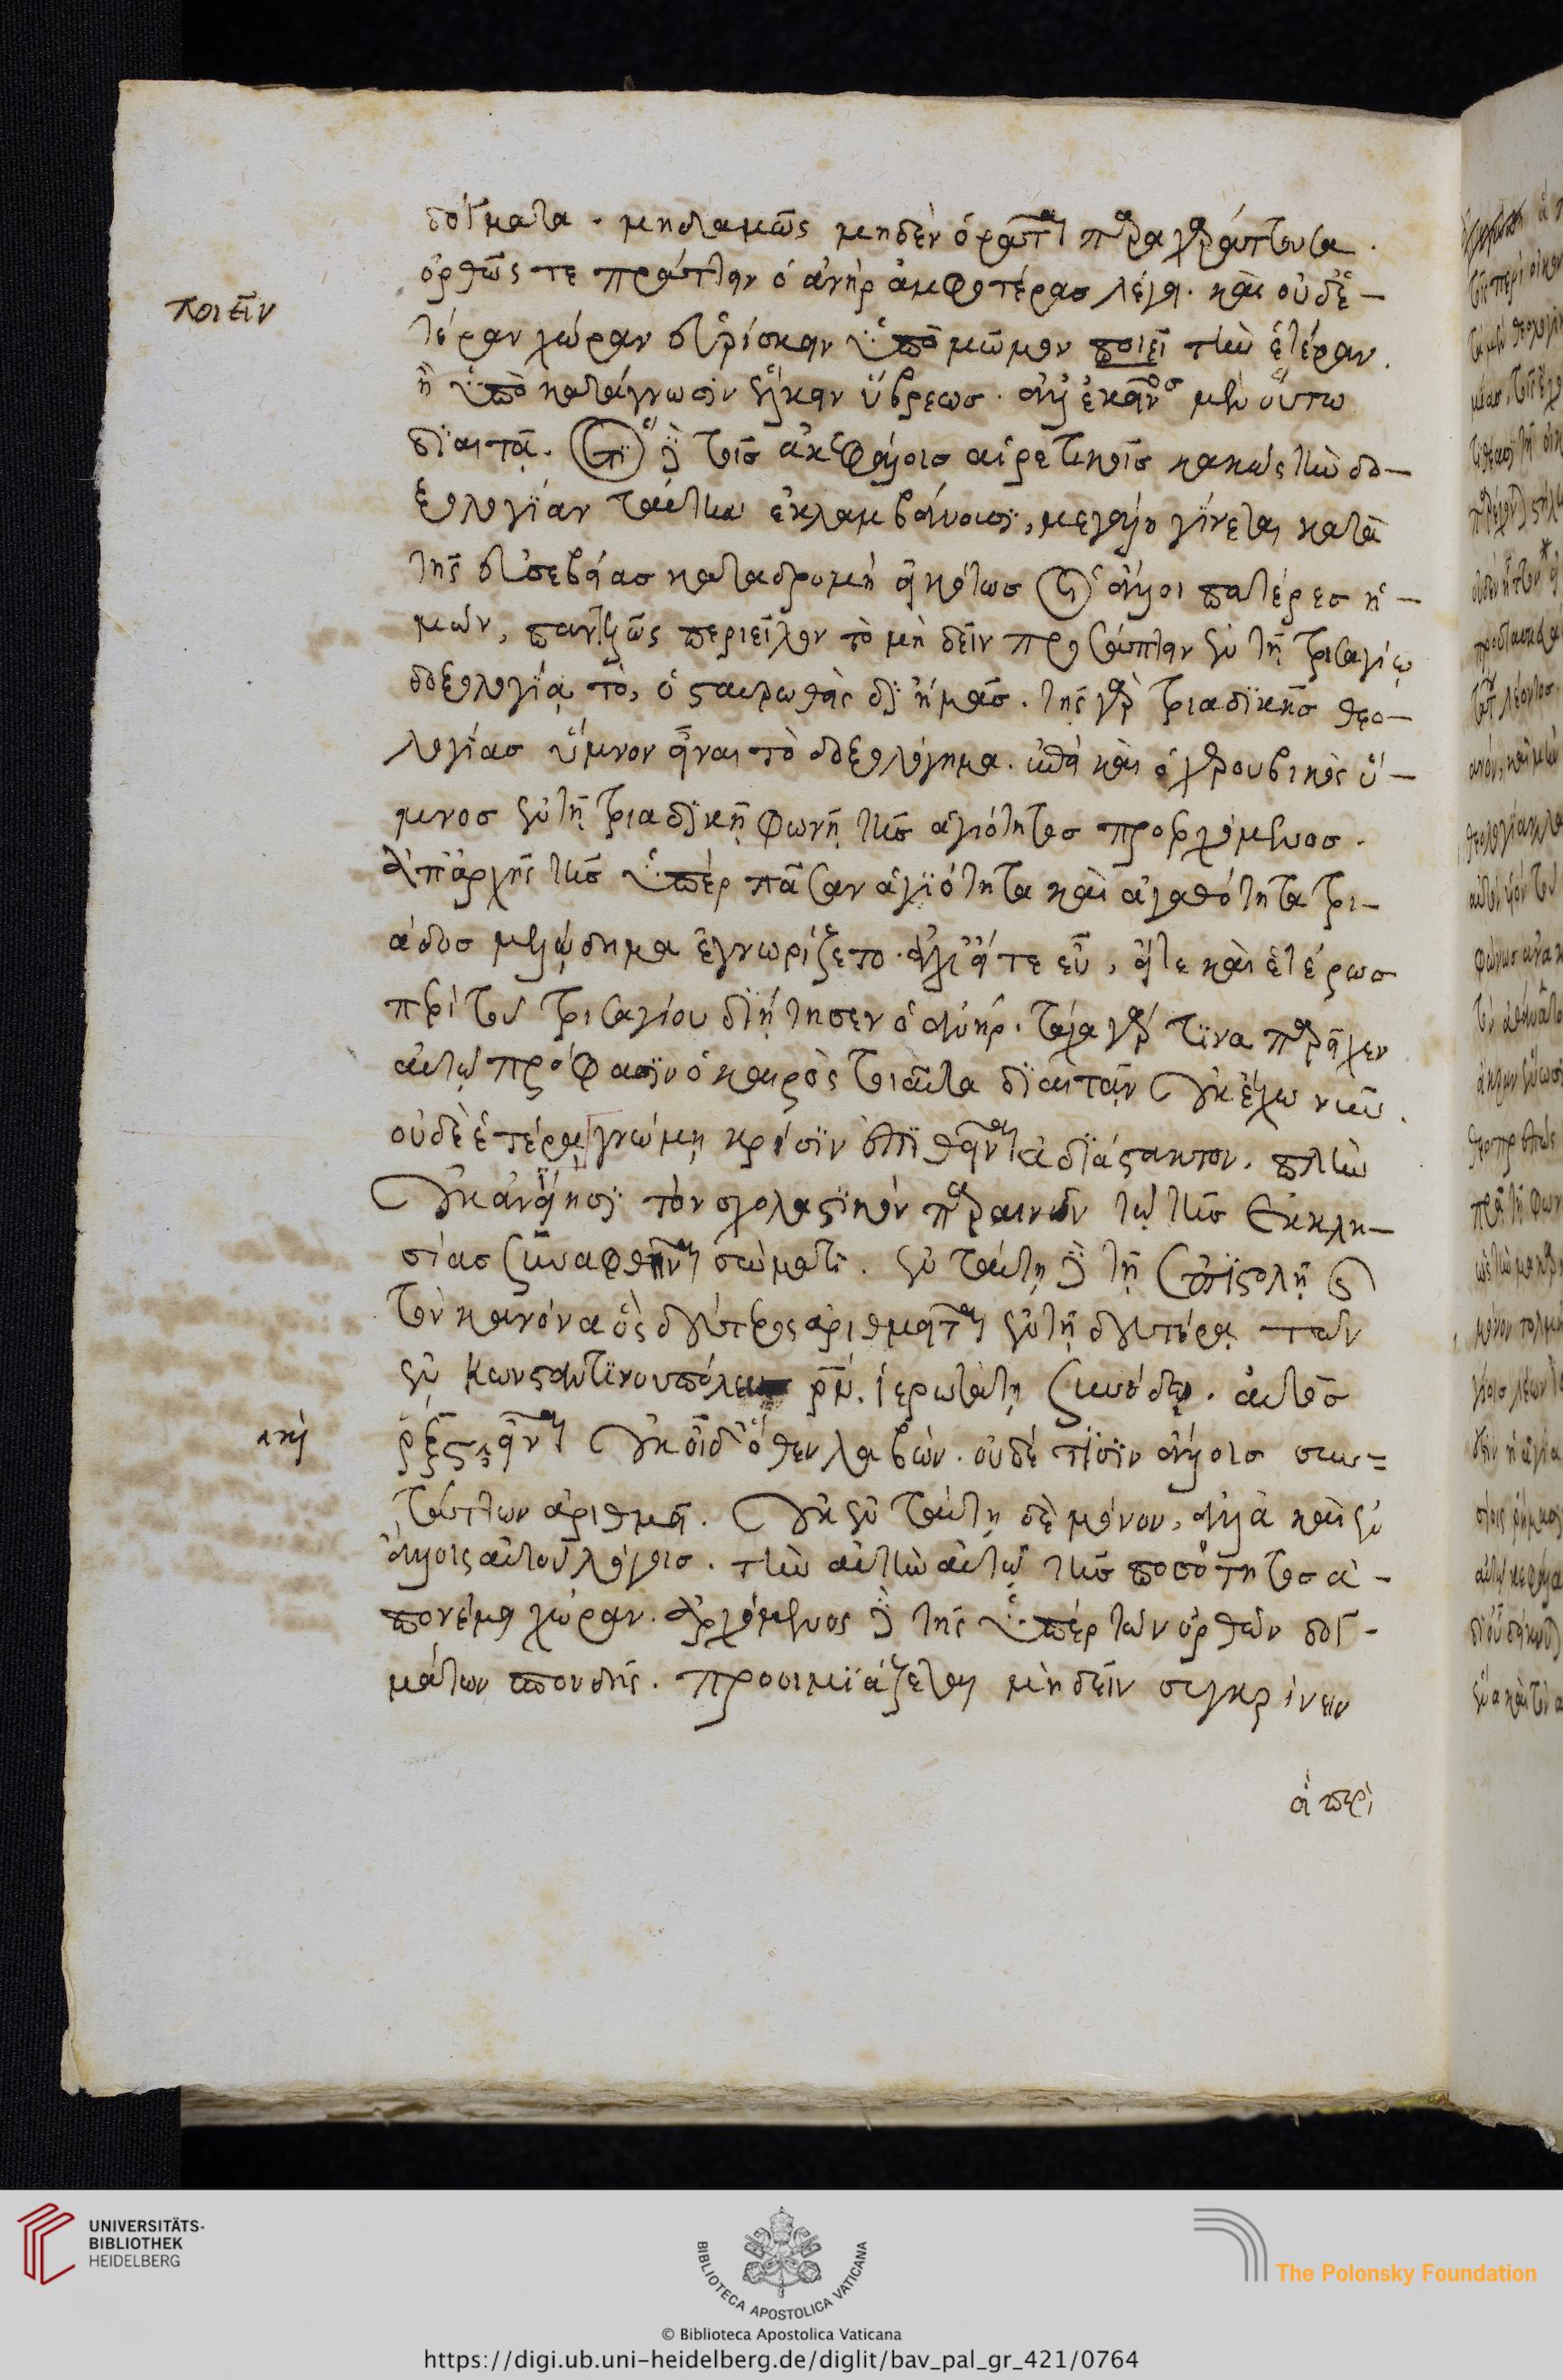 δόγματα. μηδαμῶς μηδὲν ὁρᾶσθαι παραχαράττοντα.
ὀρθῶς τε πράττειν ὁ ἀνὴρ ἀμφοτέρας λέγει. καὶ οὐδε-
ποιεῖν
τέραν χώραν εὑρίσκειν ὑπὸ μῶμον ποιεῖ τὴν ἑτέραν.
ἢ ὑπὸ κατάγνωσιν ἕλκειν ὕβρεωσ. ἀλλ' ἐκεῖνοσ μὲν οὕτω
διαιτᾷ. ἐπεὶ δὲ τοῖσ ἀκεφάλοισ αἱρετικοῖσ κακῶς τὴν δο-
ξολογίαν ταύτην ἐκλαμβάνουσι, μεγάλη γίνεται κατὰ
τῆς εὐσεβείασ καταδρομὴ εἰκότωσ οἱ ἅγιοι πατέρεσ ἡ-
μῶν, παντελῶς περιεῖλον τὸ μὴ δεῖν προσάπτειν ἐν τῇ τρισαγίῳ
δοξολογίᾳ τὸ, ὁ σταυρωθεὶς δι' ἡμᾶσ. τῆς γὰρ τριαδικῆσ θεο-
λογίασ ὕμνον εἶναι τὸ δοξολόγημα. ἐπεὶ καὶ ὁ χερουβικὸς ὕ-
μνοσ ἐν τῇ τριαδικῇ φωνῇ τῆσ ἁγιότητοσ προερχόμενοσ.
ἀπ' ἀρχῆς τῆσ ὑπὲρ πᾶσαν ἁγιότητα καὶ ἀγαθότητα τρι-
άδοσ μελῴδημα ἐγνωρίζετο. ἀλλ' εἴτε εὖ, εἴτε καὶ ἑτέρωσ
περὶ τοῦ τρισαγίου διῄτησεν ὁ ἀνήρ. τάχα γάρ τινα παρεῖχεν
αὐτῷ πρόφασιν ὁ καιρὸς τοιαῦτα διαιτᾶν οὐκ ἔχω νῦν.
οὐδὲ ἑτέρᾳ γνώμῃ κρίσιν ἐπιθεῖναι ἀδιάστακτον. πλὴν
οὐκ ἀνίησι τὸν σχολαστικὸν παραινῶν τῷ τῆσ ἐκκλη-
σίασ συναφθῆναι σώματι. ἐν ταύτῃ δὲ τῇ ἐπιστολῇ καὶ
τὸν κανόνα ὃς δεύτερος ἀριθμεῖται ἐν τῇ δευτέρᾳ τῶν
ἐν κωνσταντινουπόλει ρν. ἱερωτάτῃ συνόδῳ. αὐτὸσ
ρξη εἶναι οὐκ οἶδ' ὅθεν λαβὼν. οὐδὲ τίσιν ἄλλοισ συν=
τάττων ἀριθμεῖ. οὐκ ἐν ταύτῃ δὲ μόνον, ἀλλὰ καὶ ἐν
ἄλλοις αὐτοῦ λόγοισ. τὴν αὐτὴν αὐτῷ τῆσ ποσότητοσ ἀ-
πονέμει χώραν. ἀρχόμενος δὲ τῆς ὑπὲρ τῶν ὀρθῶν δογ-
μάτων σπουδῆς. προοιμιάζεται μὴ δεῖν συγκρίνειν
αἱ περὶ
UNIVERSITÄTS-
BIBLIOTHEK
HEIDELBERG
BIBLIOTECA APOSTOLICA VATICANA
The Polonsky Foundation
© Biblioteca Apostolica Vaticana
https://digi.ub.uni-heidelberg.de/diglit/bav_pal_gr_421/0764